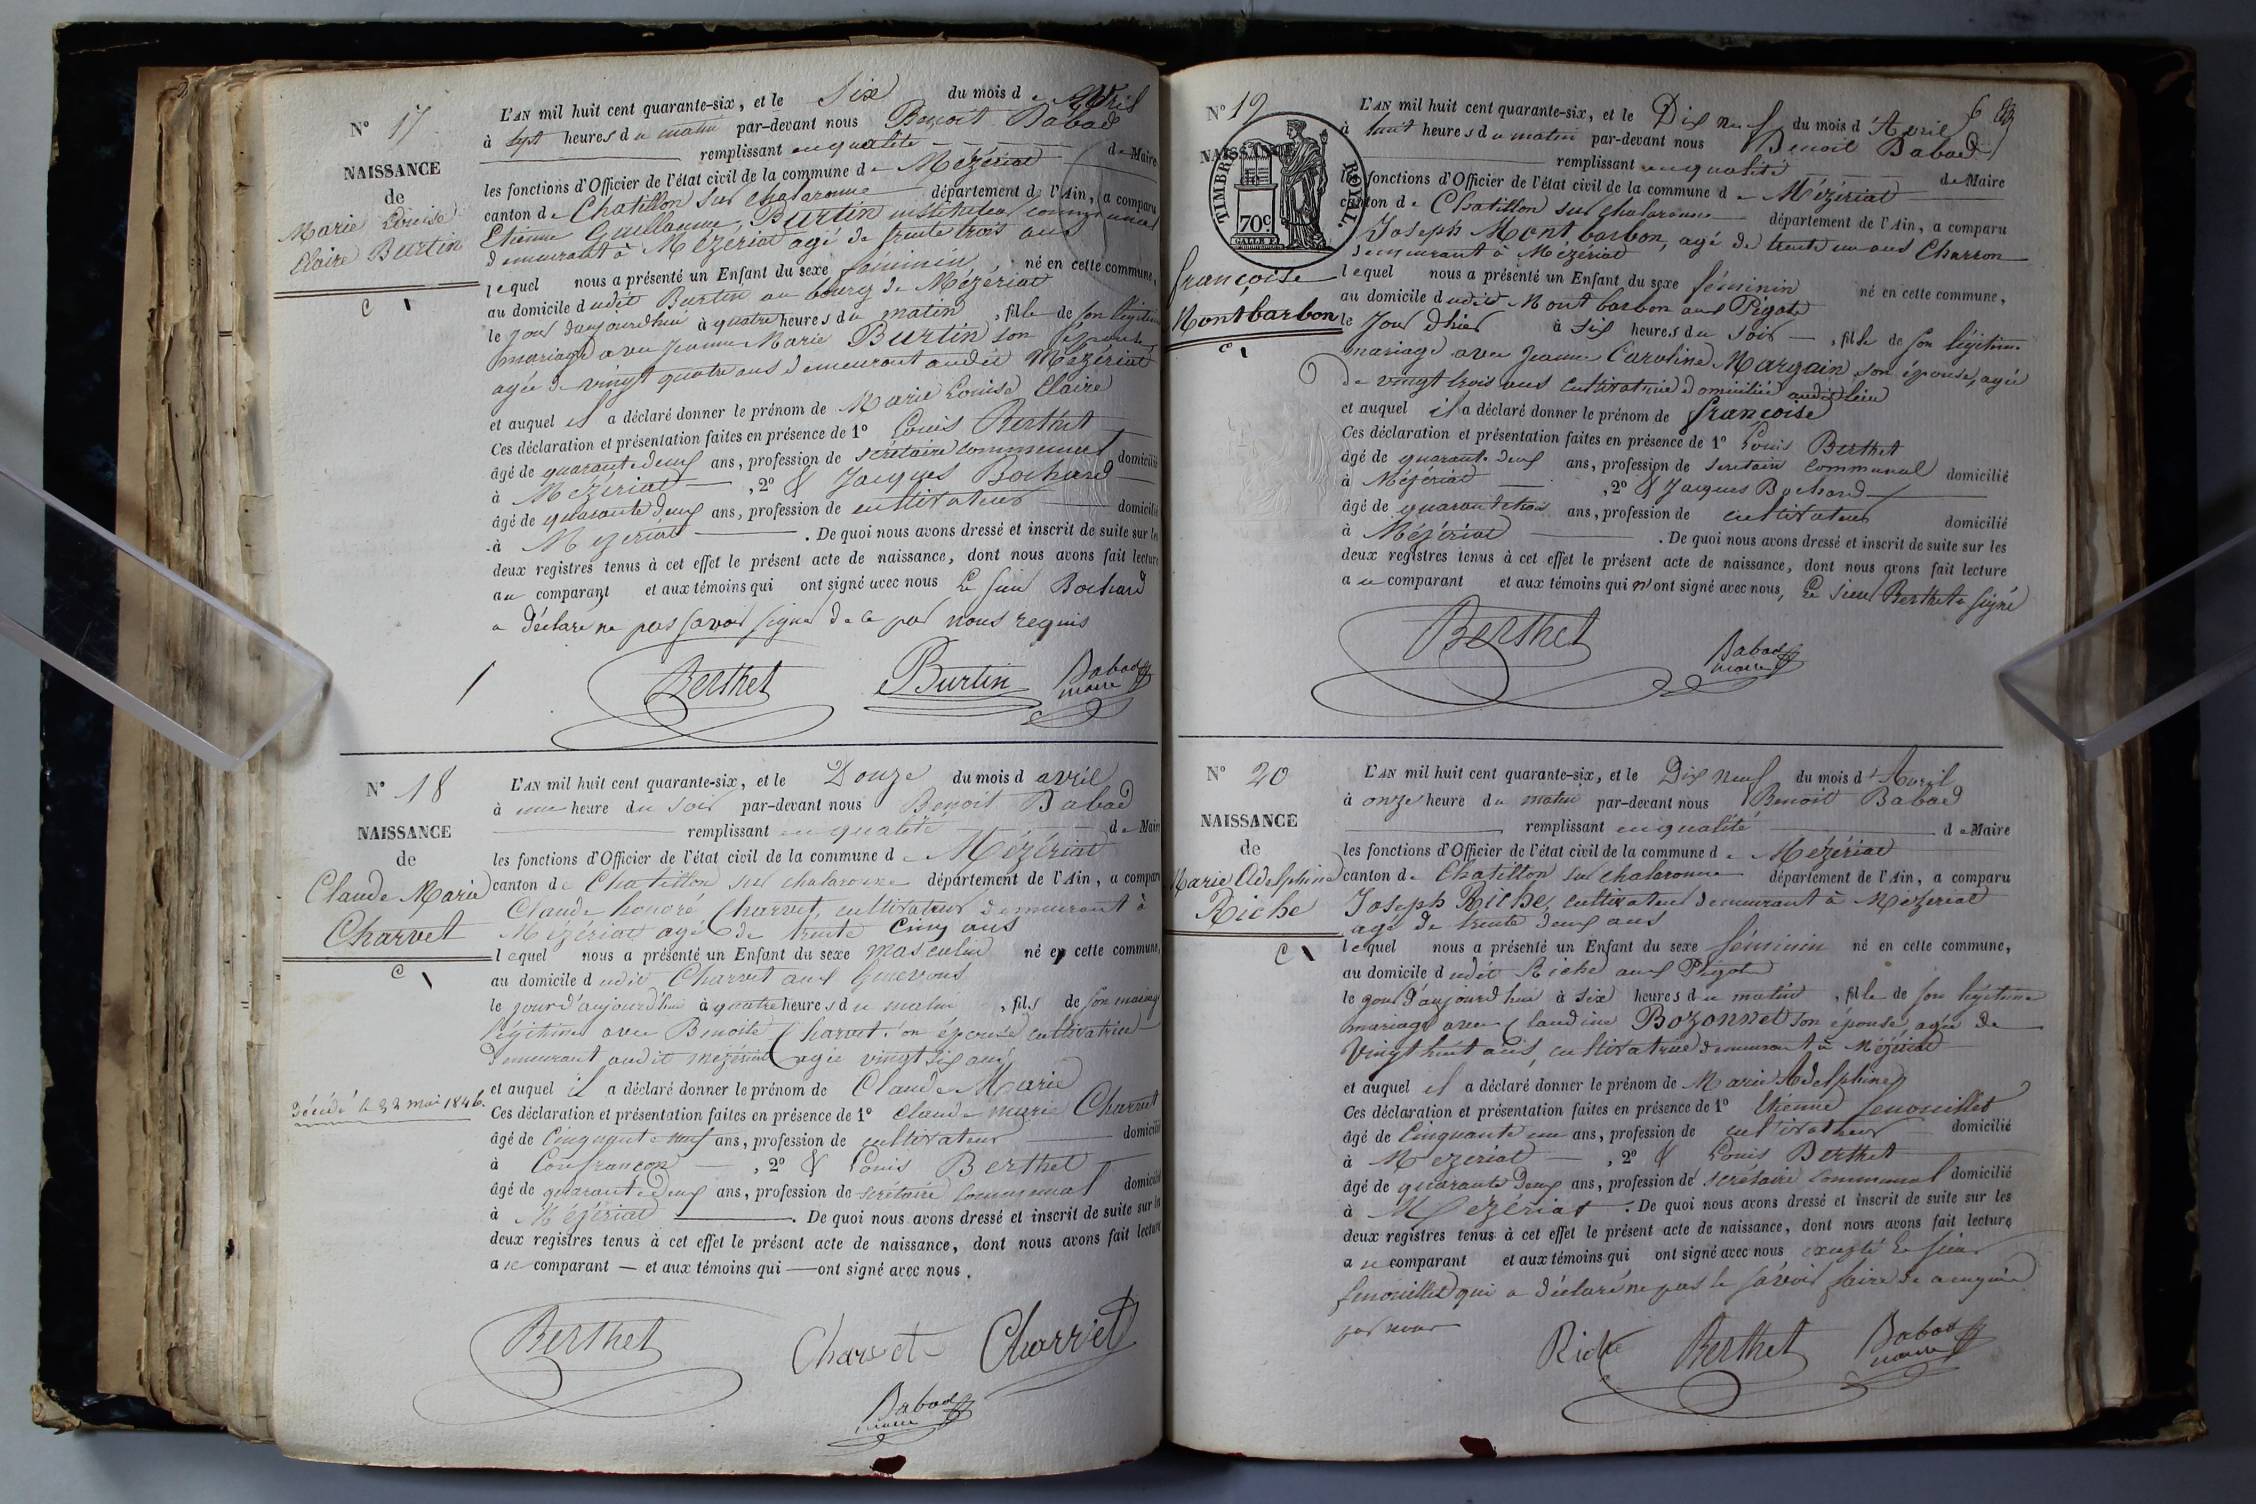 N° 17
NAISSANCE
de
Marie Louise
Claire Burtin
C
L'AN mil huit cent quarante-six, et le Six du mois d'Avril
à sept heures du matin par-devant nous Benoit Babad
remplissant en qualité de Maire
les fonctions d'Officier de l'état civil de la commune de Mézériat
canton de Chatillon sur chalaronne département de l'Ain, a comparu
Etienne Guillaume Burtin instituteur communal
demeurant à Mézériat agé de trente trois ans
lequel nous a présenté un Enfant du sexe féminin, né en cette commune,
au domicile dudit Burtin au bourg de Mézériat
le jour d'aujourdhui à quatre heures du matin, fille de son légitime
mariage avec Jeanne Marie Burtin son épouse
agée de vingt quatre ans demeurant audit Mézériat
et auquel il a déclaré donner le prénom de Marie Louise Claire
Ces déclaration et présentation faites en présence de 1° Louis Berthet
âgé de quarante deux ans, profession de secrétaire communal domicilié
à Mézériat, 2° & Jacques Bochard
âgé de quarante deux ans, profession de cultivateur domicilié
à Mézériat. De quoi nous avons dressé et inscrit de suite sur les
deux registres tenus à cet effet le présent acte de naissance, dont nous avons fait lecture
au comparant et aux témoins qui ont signé avec nous Le sieur Bochard
a déclaré ne pas savoir signer de ce par nous requis
Berthet Burtin Babad
maire
N° 18
NAISSANCE
de
Claude Marie
Charvet
C
décédé le 22 mai 1846.
L'AN mil huit cent quarante-six, et le Douze du mois d avril
à une heure du soir par-devant nous Benoit Babad
remplissant en qualité de Maire
les fonctions d'Officier de l'état civil de la commune de Mézériat
canton de Chatillon sur chalaronne département de l'Ain, a comparu
Claude honoré Charvet, cultivateur demeurant à
Mézériat agé de trente cinq ans
lequel nous a présenté un Enfant du sexe masculin né en cette commune,
au domicile dudit Charvet aux
le jour d'aujourd'hui à quatre heures du matin, fils de son mariage
légitime avec Benoite Charvet son épouse cultivatrice
demeurant audit mézériat agée vingt six ans
et auquel il a déclaré donner le prénom de Claude Marie
Ces déclaration et présentation faites en présence de 1° Claude marie Charvet
âgé de Cinquante neuf ans, profession de cultivateur domicilié
à Confrançon, 2° & Louis Berthet
âgé de quarante deux ans, profession de secrétaire communal domicilié
à Mézériat. De quoi nous avons dressé et inscrit de suite sur les
deux registres tenus à cet effet le présent acte de naissance, dont nous avons fait lecture
au comparant — et aux témoins qui — ont signé avec nous.
Berthet Charvet Charvet
Babad
maire
N° 19
NAISSANCE
TIMBRE ROYAL.
70c.
françoise
Montbarbon
C
L'AN mil huit cent quarante-six, et le Dix neuf du mois d'Avril
à huit heures du matin par-devant nous Benoit Babad
remplissant en qualité de Maire
les fonctions d'Officier de l'état civil de la commune de Mézériat
canton de Chatillon sur chalaronne département de l'Ain, a comparu
Joseph Montbarbon, agé de trente un ans Charron
demeurant à Mézériat
lequel nous a présenté un Enfant du sexe féminin né en cette commune,
au domicile dudit Montbarbon aux Pigots
le Jour d'hier à six heures du soir —, fille de son légitime
mariage avec Jeanne Caroline Margain son épouse, agée
de vingt trois ans cultivatrice domiciliée audit lieu
et auquel il a déclaré donner le prénom de françoise
Ces déclaration et présentation faites en présence de 1° Louis Berthet
âgé de quarante deux ans, profession de secrétaire communal domicilié
à Mézériat, 2° & Jacques Bochard
âgé de quarante trois ans, profession de cultivateur domicilié
à Mézériat. De quoi nous avons dressé et inscrit de suite sur les
deux registres tenus à cet effet le présent acte de naissance, dont nous avons fait lecture
au comparant et aux témoins qui n'ont signé avec nous, Le sieur Berthet a signé
Berthet Babad
maire
N° 20
NAISSANCE
de
Marie Adelphine
Riche
C
L'AN mil huit cent quarante-six, et le Dix neuf du mois d'Avril
à onze heure du matin par-devant nous Benoit Babad
remplissant en qualité de Maire
les fonctions d'Officier de l'état civil de la commune de Mézériat
canton de Chatillon sur chalaronne département de l'Ain, a comparu
Joseph Riche, cultivateur demeurant à Mézériat
agé de trente deux ans
lequel nous a présenté un Enfant du sexe féminin né en cette commune,
au domicile dudit Riche aux Pigots
le jour d'aujourd'hui à six heures du matin, fille de son légitime
mariage avec Claudine Bozonnet son épouse, agée de
vingt huit ans, cultivatrice demeurant à Mézériat
et auquel il a déclaré donner le prénom de Marie Adelphine
Ces déclaration et présentation faites en présence de 1° Etienne fenouillet
âgé de Cinquante un ans, profession de cultivateur domicilié
à Mézériat, 2° & Louis Berthet
âgé de quarante deux ans, profession de secrétaire communal domicilié
à Mézériat. De quoi nous avons dressé et inscrit de suite sur les
deux registres tenus à cet effet le présent acte de naissance, dont nous avons fait lecture
au comparant et aux témoins qui ont signé avec nous excepté le sieur
fenouillet qui a déclaré ne pas le savoir faire de ce requis
par nous
Riche Berthet Babad
maire